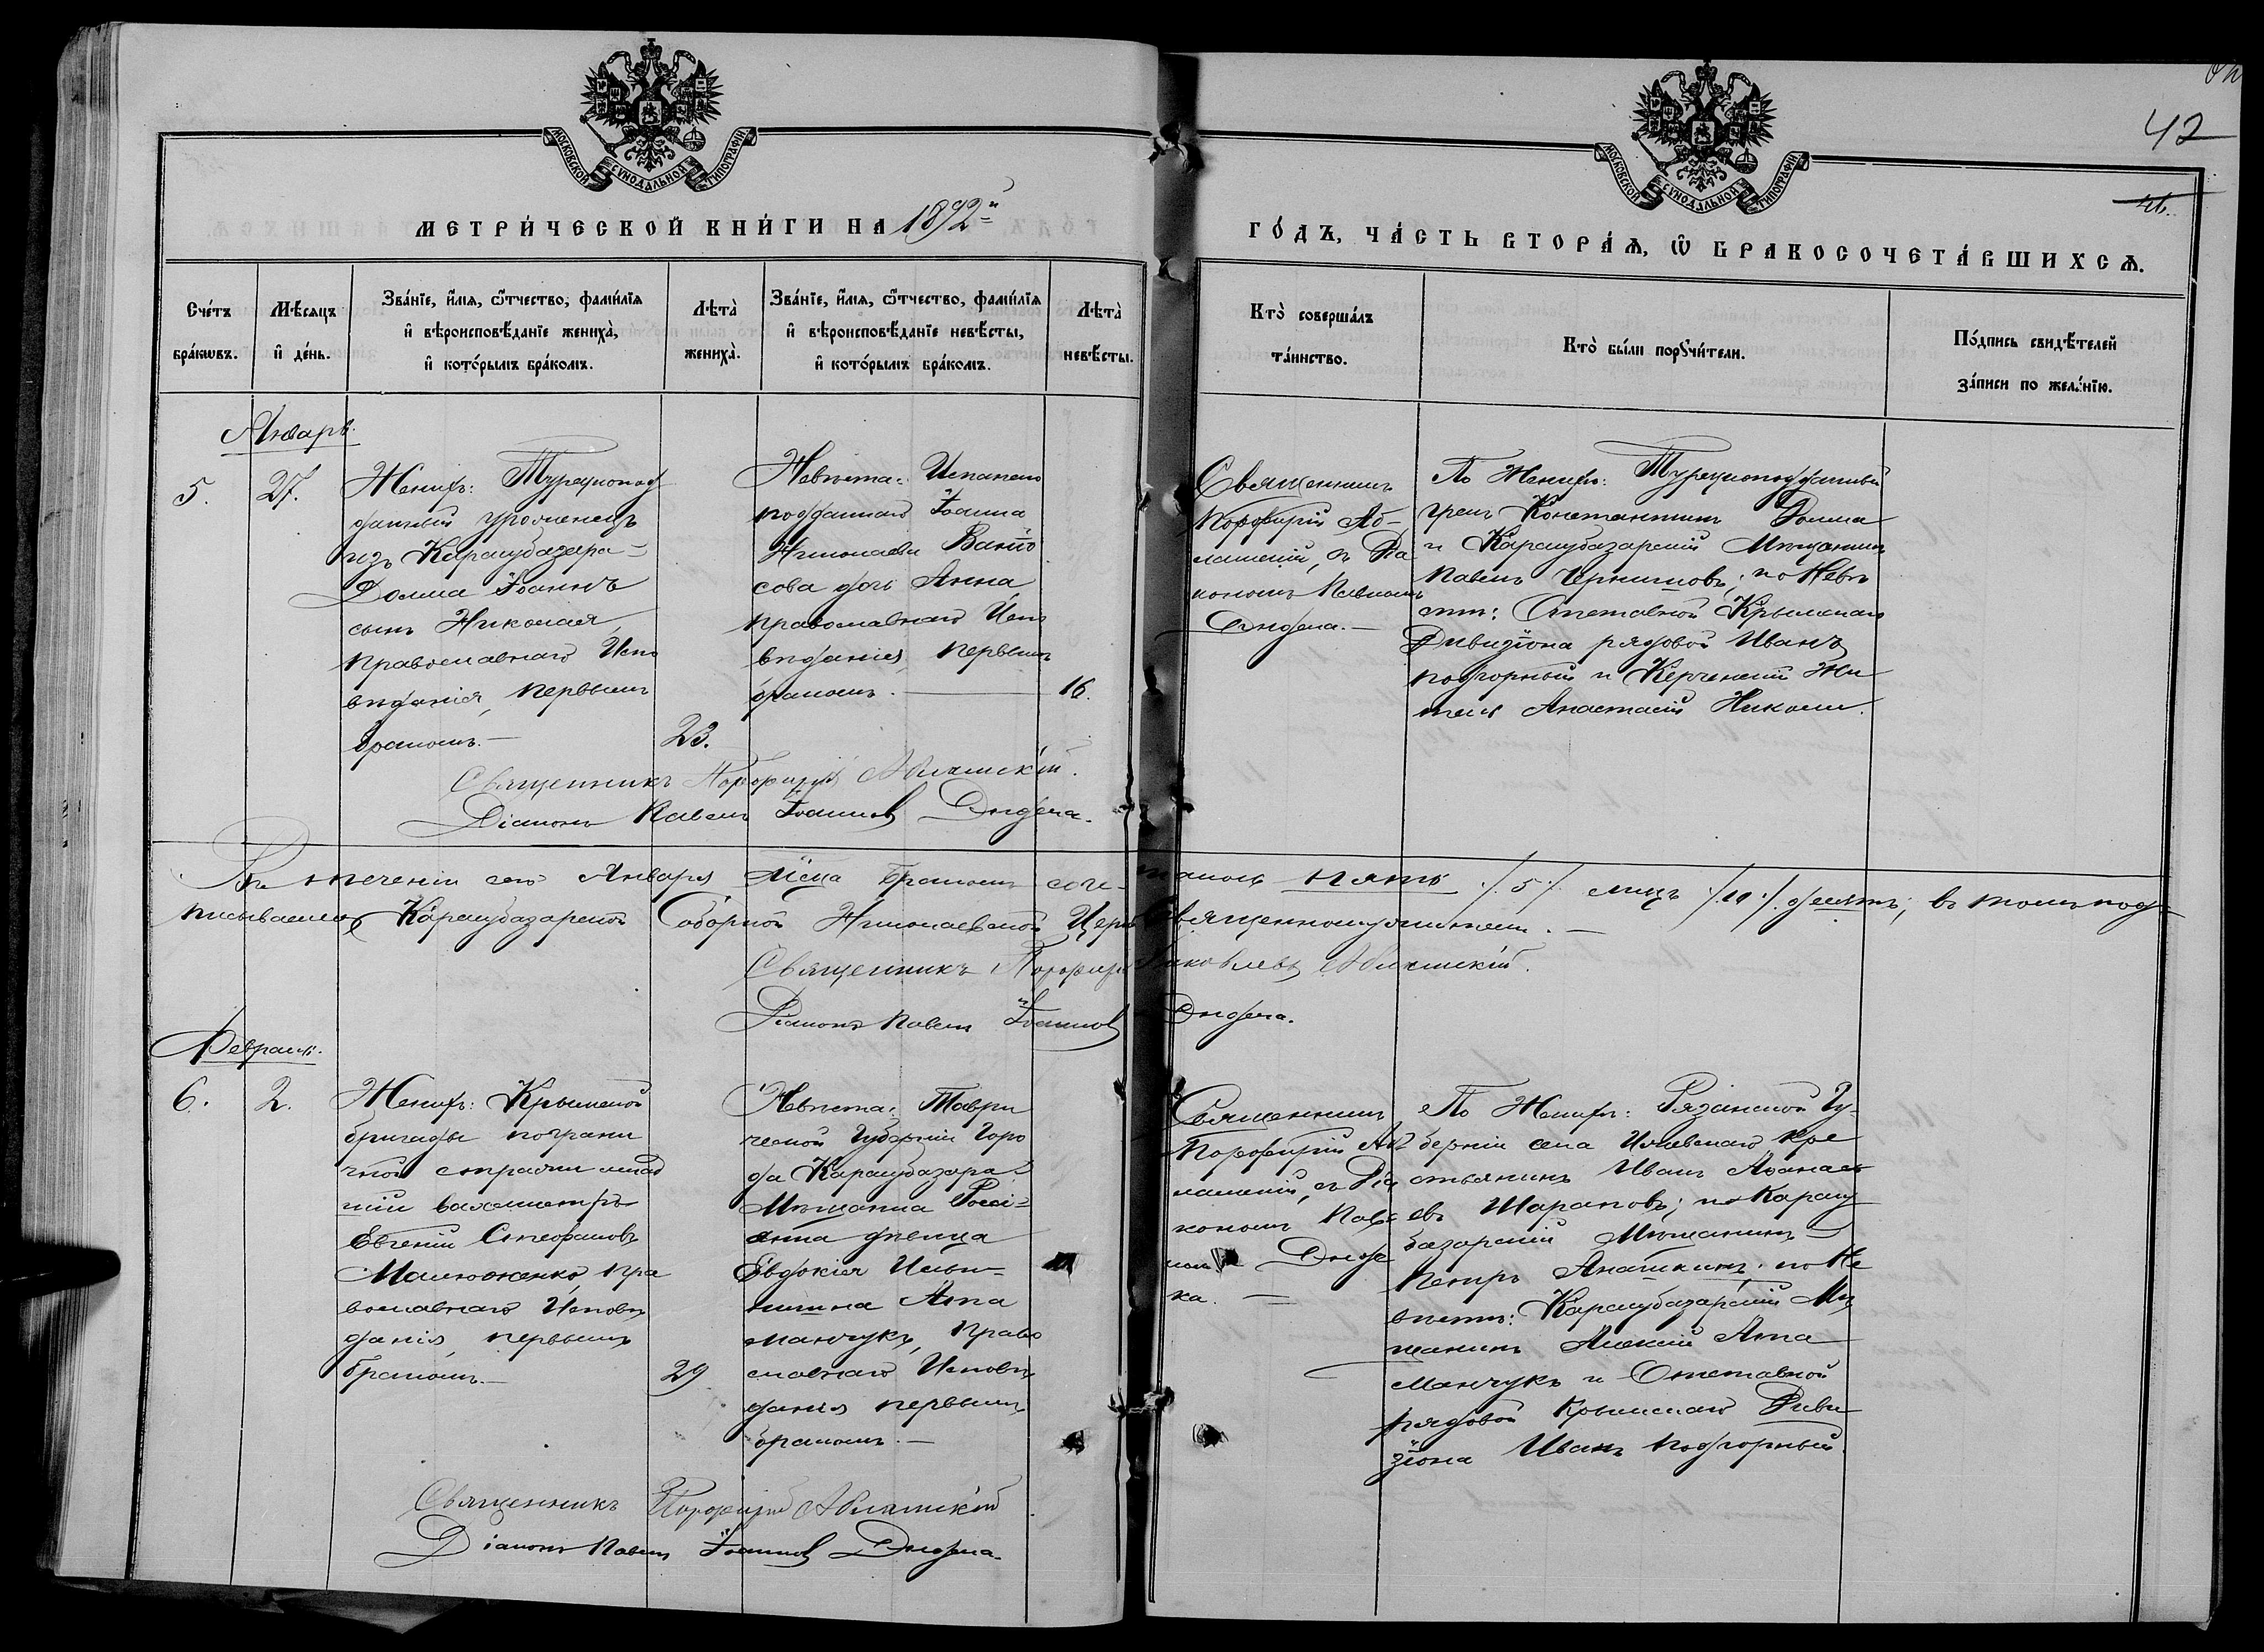 42
МОСКОВСКОЙ СѴНОДАЛЬНОЙ ТИПОГРАФІИ
МОСКОВСКОЙ СѴНОДАЛЬНОЙ ТИПОГРАФІИ
МЕТРИ́ЧЕСКОЙ КНИ́ГИ НА 1892й
ГО́ДЪ, ЧА́СТЬ ВТОРА́Ѧ, Ѿ БРАКОСОЧЕТА́ВШИХСѦ.
Сче́тъ
бра́кѡвъ.
Мѣ́сяцъ
и҆ де́нь.
Зва́нїе, и҆́мѧ, ѻ҆́тчество, фами́лїѧ
и҆ вѣроисповѣ́данїе жениха̀,
и҆ кото́рымъ бра́комъ.
Лѣ́та̀
жениха̀.
Зва́нїе, и҆́мѧ, ѻ҆́тчество, фами́лїѧ
и҆ вѣроисповѣ́данїе невѣ́сты,
и҆ кото́рымъ бра́комъ.
Лѣ́та̀
невѣ́сты.
Кто̀ соверша́лъ
та́инство.
Кто̀ бы́ли порꙋчи́тели.
По́дпись свидѣ́телей
за́писи по жела́нїю.
Январь.
5.
27.
Женихъ: Турецкопод
данный уроженецъ
изъ Карасубазара
Долма Іоаннъ
сынъ Николая,
православнаго Испо
вѣданія, первымъ
бракомъ.—
23.
Невѣста:
подданнаго Іоанна
Николаева
сова дочь Анна
православнаго Испо
вѣданія, первымъ
бракомъ.—
16.
Священникъ
Порфирій Аб-
лашскій, съ Діа
кономъ Павломъ
По Женихѣ: Турецкоподданный
грекъ Константинъ Долма
и Карасубазарскій Мѣщанинъ
Павелъ ; по Невѣ
стѣ: Отставной Крымскаго
Дивизіона рядовой Иванъ
Подгорный и Керченскій Жи
тель Анастасій Николи.
Священникъ Порфирій Аблашскій.
Діаконъ Павелъ Іоанновъ
Въ теченіи сего Января Мѣсяца бракомъ соче-талось пять /5/ лицъ /10/ десять; въ томъ под-
писываемся Карасубазарской Соборной Николаевской Церкви Священнослужители.—
Священникъ Порфирій Яковлевъ Аблашскій.
Діаконъ Павелъ Іоанновъ
Февраль.
6.
2.
Женихъ: Крымской
бригады пограни
чной стражи млад
шій вахмистръ
Евгеній Стефановъ
пра
вославнаго Исповѣ
данія, первымъ
бракомъ.—
29
Невѣста: Таври
ческой Губерніи Горо
да Карасубазара
Мѣщанка
дѣвица
Евдокія
Ата
манчукъ, право
славнаго Исповѣ
данія первымъ
бракомъ.—
Священникъ
Порфирій Аб
лашскій, съ Діа
кономъ Пав
По Женихѣ: Рязанской Гу-
берніи села кре
стьянинъ Иванъ Аѳанась
евъ Шараповъ; и Карасу
базарскій Мѣщанинъ
Петръ Анашкинъ; по Не
вѣстѣ: Карасубазарскій Мѣ
щанинъ Алексій Ата
манчукъ и Отставной
рядовой Крымскаго Диви
зіона Иванъ Подгорный.
Священникъ Порфирій Аблашскій
Діаконъ Павелъ Іоанновъ